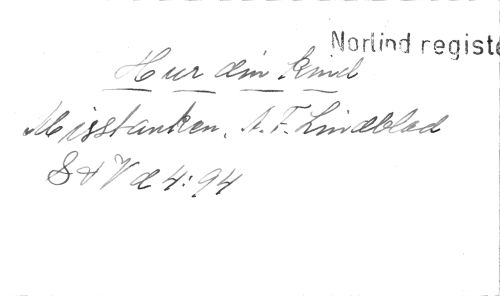 Norlind registe
Hur din kind
Misstanken. A. F. Lindblad
S & V d 4: 94